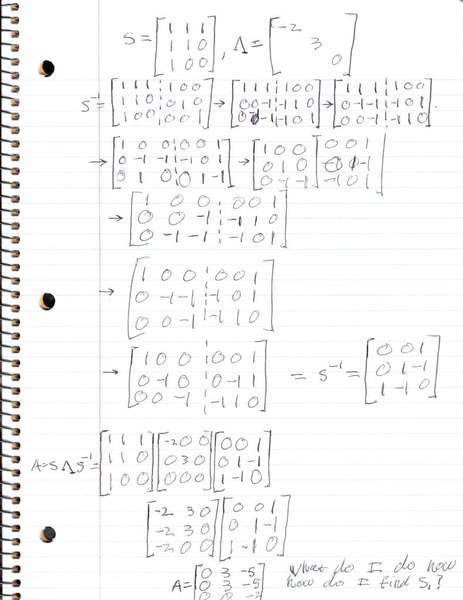 S = [1 1 1; 1 1 0; 1 0 0], Λ = [-2; 3; 0]
S⁻¹ = [1 1 1 | 1 0 0; 1 1 0 | 0 1 0; 1 0 0 | 0 0 1] → [1 1 1 | 1 0 0; 0 0 -1 | -1 1 0; 0 -1 -1 | -1 0 1] → [1 1 1 | 1 0 0; 0 1 1 | 1 0 1; 0 0 -1 | -1 1 0].
→ [1 0 0 | 0 0 1; 0 -1 -1 | -1 0 1; 0 1 0 | 0 1 -1] → [1 0 0 | 0 0 1; 0 1 0 | 0 1 -1; 0 -1 -1 | -1 0 1]
→ [1 0 0 | 0 0 1; 0 0 -1 | -1 1 0; 0 -1 -1 | -1 0 1]
→ [1 0 0 | 0 0 1; 0 -1 -1 | -1 0 1; 0 0 -1 | -1 1 0]
→ [1 0 0 | 0 0 1; 0 -1 0 | 0 -1 1; 0 0 -1 | -1 1 0] = S⁻¹ = [0 0 1; 0 1 -1; 1 -1 0]
A = S Λ S⁻¹ = [1 1 1; 1 1 0; 1 0 0] [-2 0 0; 0 3 0; 0 0 0] [0 0 1; 0 1 -1; 1 -1 0]
[-2 3 0; -2 3 0; -2 0 0] [0 0 1; 0 1 -1; 1 -1 0]
A = [0 3 -5; 0 3 -5; 0 0 -2]
What do I do now
how do I find S₁?